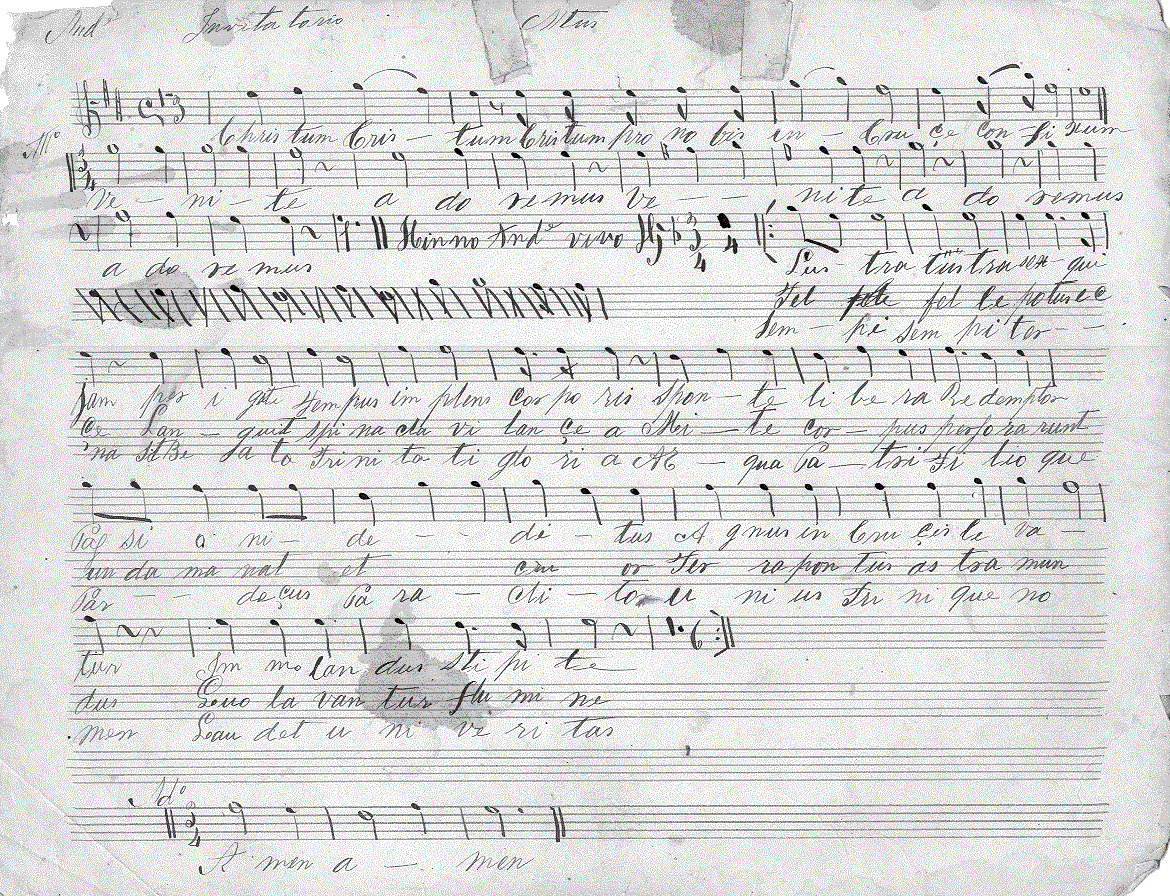 And.º Invitatorio Altus
Christum Cris - tum Cristum pro no bis in - Cru çe con - fi xum
All.º
3 4
Ve - ni - te a do remus Ve - - - nite a do remus
Hinno And.º vivo 3 4
a do re mus Lus - tra tustra sex - qui
Fel fel le potus e c
Sem - pi sem pi ter - -
jam per i gite tempus im plens cor po ris Spon - te li be ra Redemptor
çe Lan - guit spi na cla vi lan çe a Mi - te cor - pus perfo ra runt
na sit Be a ta Trini ta ti glo ri a AE - qua Pa - tri Fi lio que
Pas si o ni - de - - di - tus A gnus in Cru çis le va -
un da ma nat et cru or Ter ra pon tus as tra mun
Par - - de çus Pa ra - cli - to u ni us Tri ni que no
tur Im mo lan dus sti pi te
dus Quo la van tur flu mi ne
men Lau det u ni ve ri tas
d.º
3 4
A men a - men